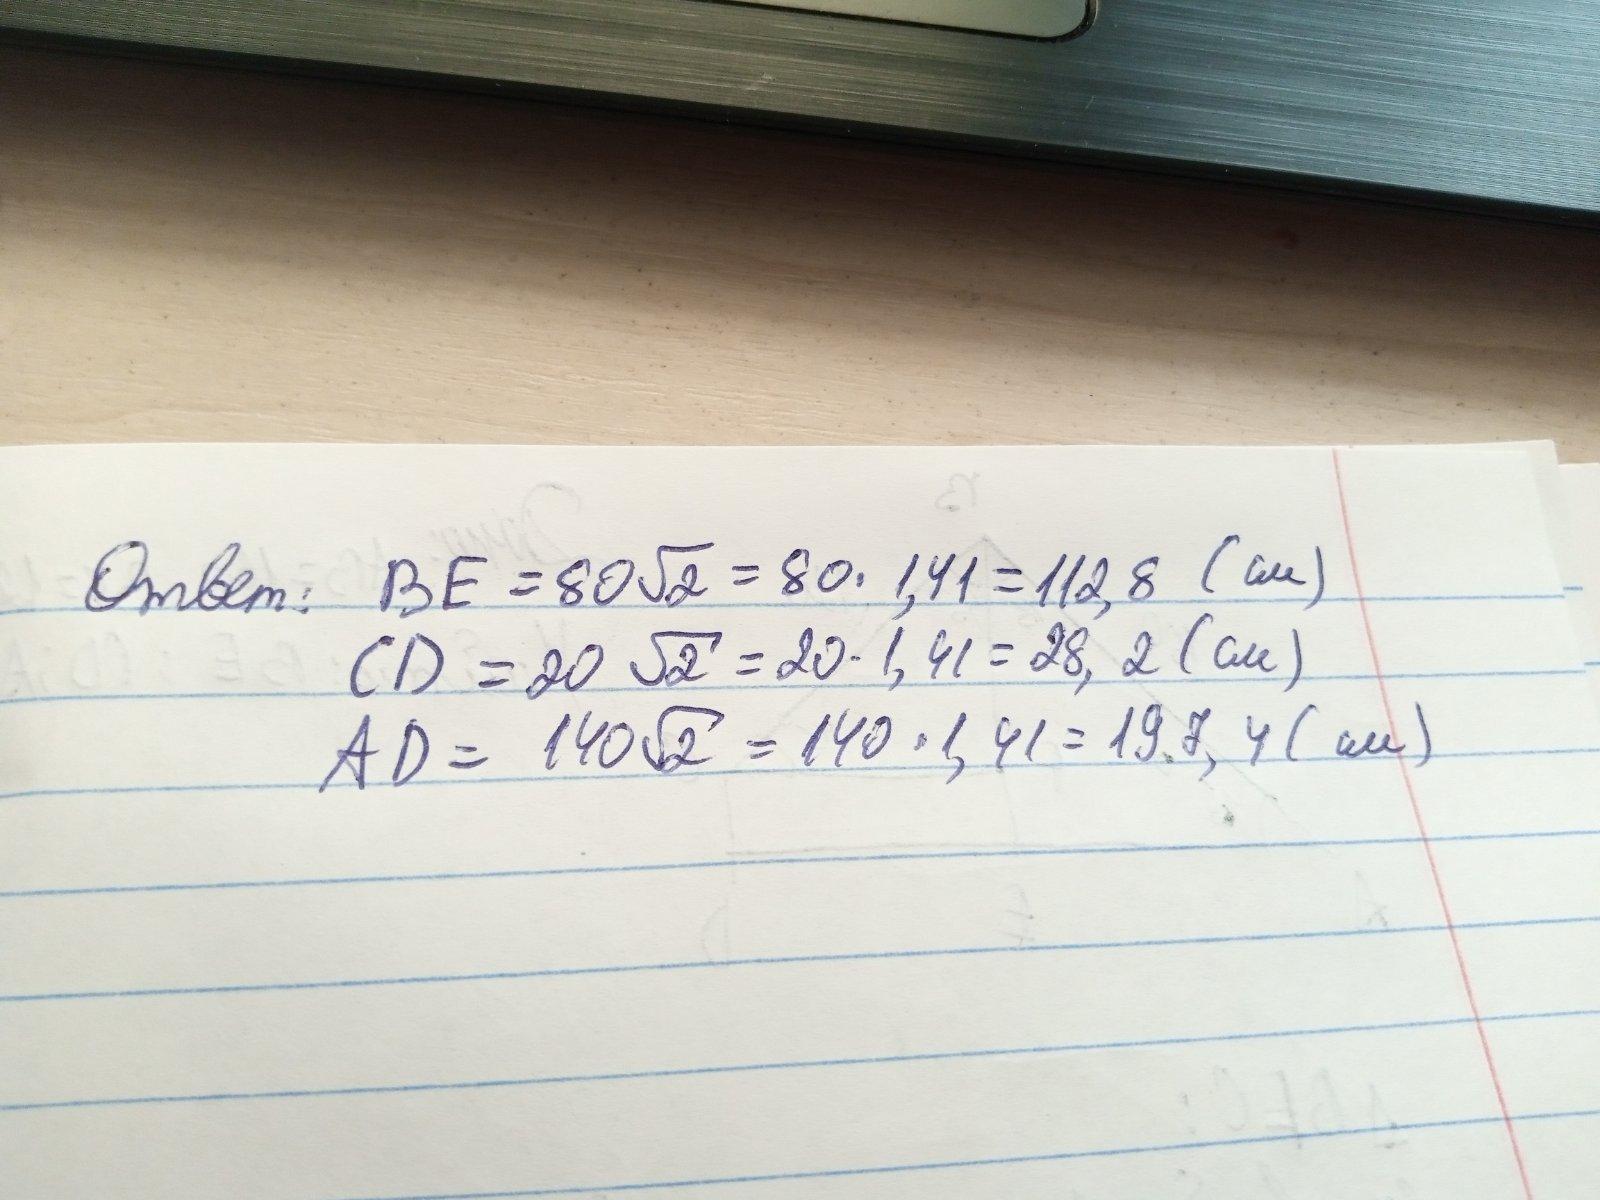 Ответ: BE = 80√2 = 80 · 1,41 = 112,8 (см)
CD = 20 √2 = 20 · 1,41 = 28,2 (см)
AD = 140√2 = 140 · 1,41 = 197,4 (см)